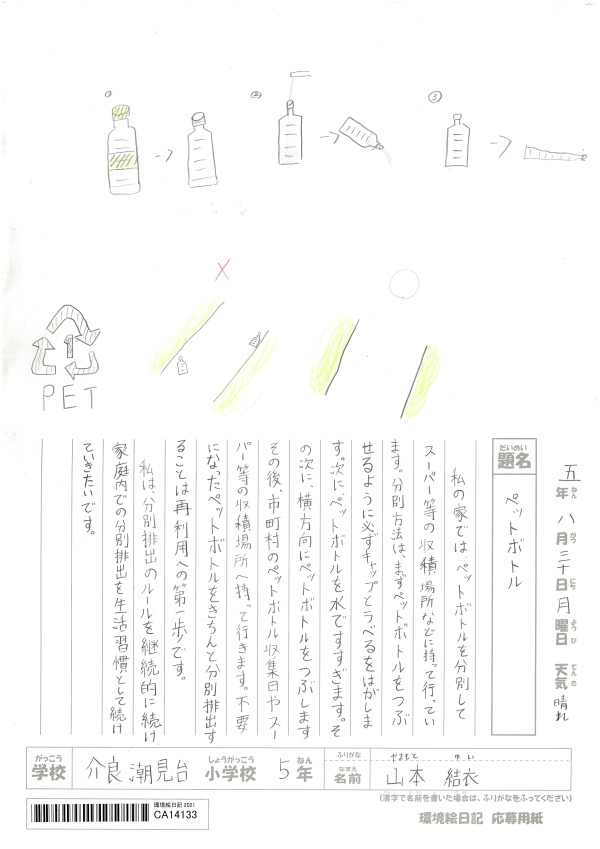 ①
②
③
PET
五年八月三十日月曜日 天気 晴れ
ねん がつ にち ようび てんき
だいめい
題名
ペットボトル
私の家ではペットボトルを分別して
スーパー等の収積場所などに持って行ってい
ます。分別方法は、まずペットボトルをつぶ
せるように必ずキャップとラベルをはがしま
す。次にペットボトルを水ですすぎます。そ
の次に、横方向にペットボトルをつぶします
その後、市町村のペットボトル収集日やスー
パー等の収積場所へ持って行きます。不要
になったペットボトルをきちんと分別排出す
ることは再利用への第一歩です。
私は、分別排出のルールを継続的に続け
家庭内での分別排出を生活習慣として続け
ていきたいです。
がっこう しょうがっこう ねん ふりがな やまもと ゆい
学校 介良潮見台 小学校 5年 なまえ 名前 山本 結衣
(漢字で名前を書いた場合は、ふりがなをふってください)
環境絵日記 応募用紙
環境絵日記 2021
CA14133